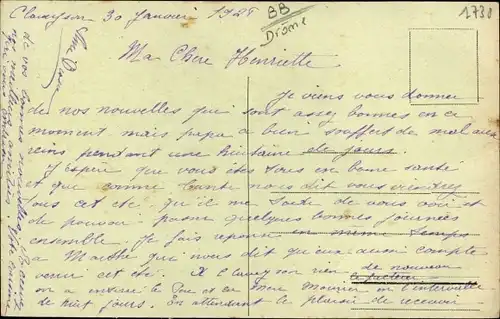 Claveyson 30 Janvier 1925
BB
Drôme
1730
Ma Chère Henriette
Je viens vous donner
de nos nouvelles qui sont assez bonnes en ce
moment mais papa a bien souffert de mal aux
reins pendant une huitaine de jours.
J'espère que vous êtes tous en bonne santé
et que comme tante nous dit vous viendrez
tous cet été, qu'il me tarde de vous voir et
de pouvoir passer quelques bonnes journées
ensemble. Je fais réponse en même temps
à Marthe qui nous dit qu'eux aussi compte
venir cet été. X Claveyson rien de nouveau
on a enterré le et la mère Mounier en l'intervalle
de huit jours. En attendant le plaisir de recevoir
de vos bonnes nouvelles je
Votre cousine